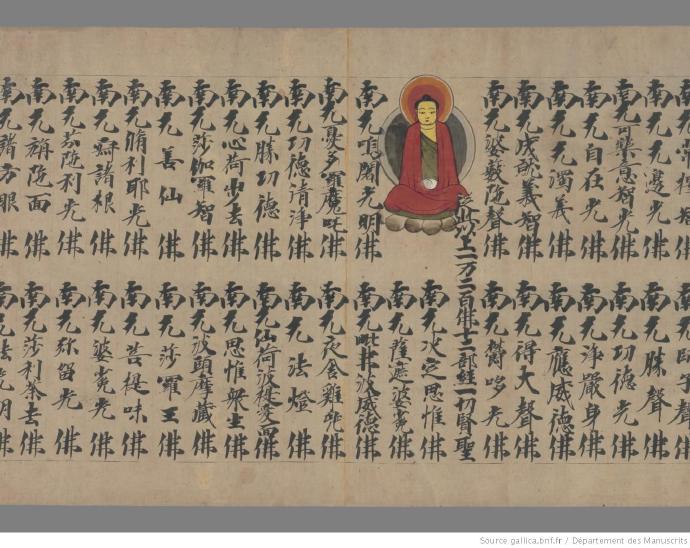 南无得智佛
南无師子聲佛
南无无邊光佛
南无勝聲佛
南无可樂意智光佛
南无功德光佛
南无自在光佛
南无淨嚴身佛
南无无濁義佛
南无應威德佛
南无成就義智佛
南无得大聲佛
南无婆藪陁聲佛
南无欝哆光佛
此以上一万二百佛十二部經一切賢聖
南无決定思惟佛
南无婆佛
南无聞光明佛
南无毗波威德佛
南无憂多羅魔吒佛
南无夜舍雞兜佛
南无功德清淨佛
南无法燈佛
南无勝功德佛
南无仙荷波提愛面佛
南无心荷步去佛
南无思惟衆生佛
南无莎伽羅智佛
南无波頭摩藏佛
南无善仙佛
南无莎羅王佛
南无脩利耶光佛
南无菩提味佛
南无諸根佛
南无婆光佛
南无陁利光佛
南无弥留光佛
南无稱陁面佛
南无莎利茶去佛
南无諸方眼佛
南无法光明佛
Source gallica.bnf.fr / Département des Manuscrits